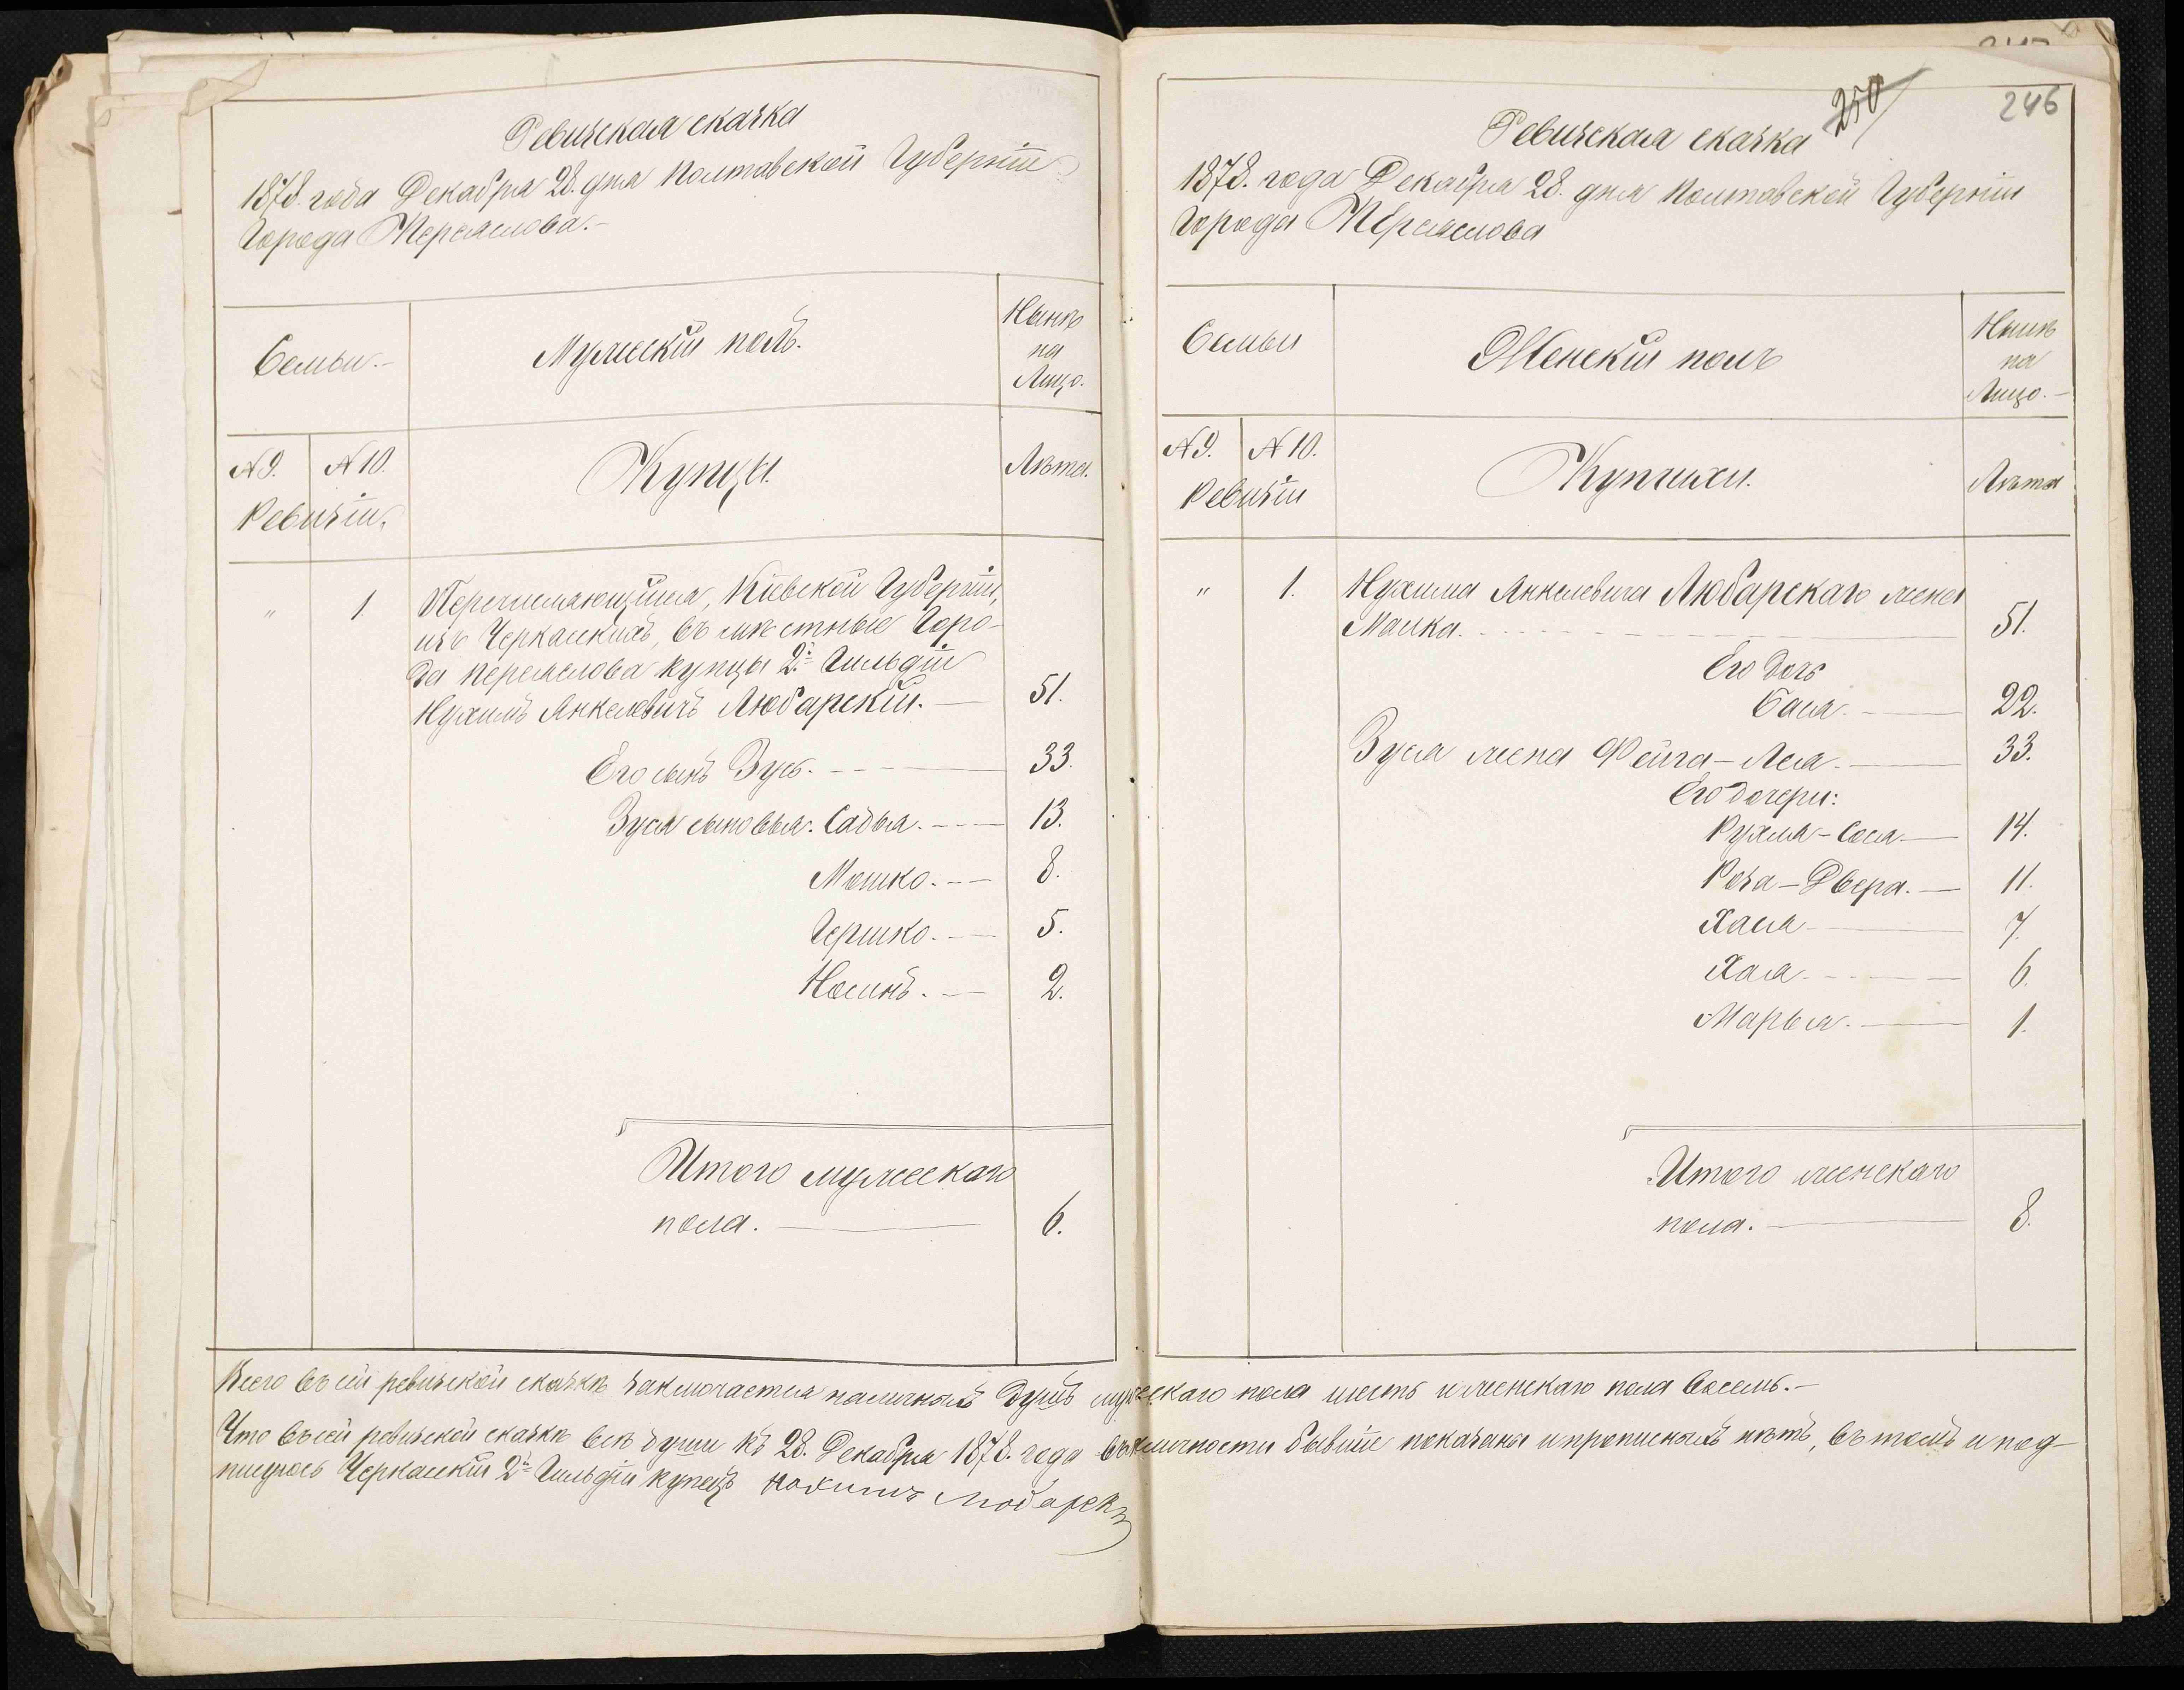 Ревизская сказка
1878. года Декабря 28. дня Полтавской Губернiи
Города Переяслова.-
Семьи.-
Мужескiй полъ.
Нынѣ
на
Лицо.
№ 9.
№ 10.
Ревизiи.
Купцы.
Лѣта.
"
1
Перечисляющiйся, Кiевской Губернiи,
изъ Черкасскихъ, въ мѣстные Горо-
да Переяслова купцы 2й Гильдiи
Нухимъ Янкелевичъ Любарскiй. — 51.
Его сынъ Зусь. - - - — 33.
Зуся сыновья: Садья. - - — 13.
Мошко. - - — 8.
Гершко. - — 5.
Носинъ. - — 2.
Итого мужескаго
пола. — 6.
250
246
Ревизская сказка
1878. года Декабря 28. дня Полтавской Губернiи
Города Переяслова
Семьи
Женскiй полъ
Нынѣ
на
Лицо.-
№ 9.
№ 10.
Ревизiи
Купчихи.
Лѣта
"
1.
Нухима Янкелевича Любарскаго жена
Малка. - - - — 51.
Его дочь
Бася. - — 22.
Зуся жена Фейга-Лея. — 33.
Его дочери:
Рухля-Сося. — 14.
Роза-Двера. — 11.
Хася - — 7.
Хая. - - — 6.
Марья. - — 1.
Итого женскаго
пола. — 8.
Всего въ сей ревизской сказкѣ заключается наличныхъ душъ мужескаго пола шесть и женскаго пола восемь.-
Что въ сей ревизской сказкѣ всѣ души къ 28. Декабря 1878. года въ наличности бывшiе показаны и прописныхъ нѣтъ, въ томъ и под-
писуюсь Черкасскiй 2й Гильдiи купецъ Нохимъ Любарскъ